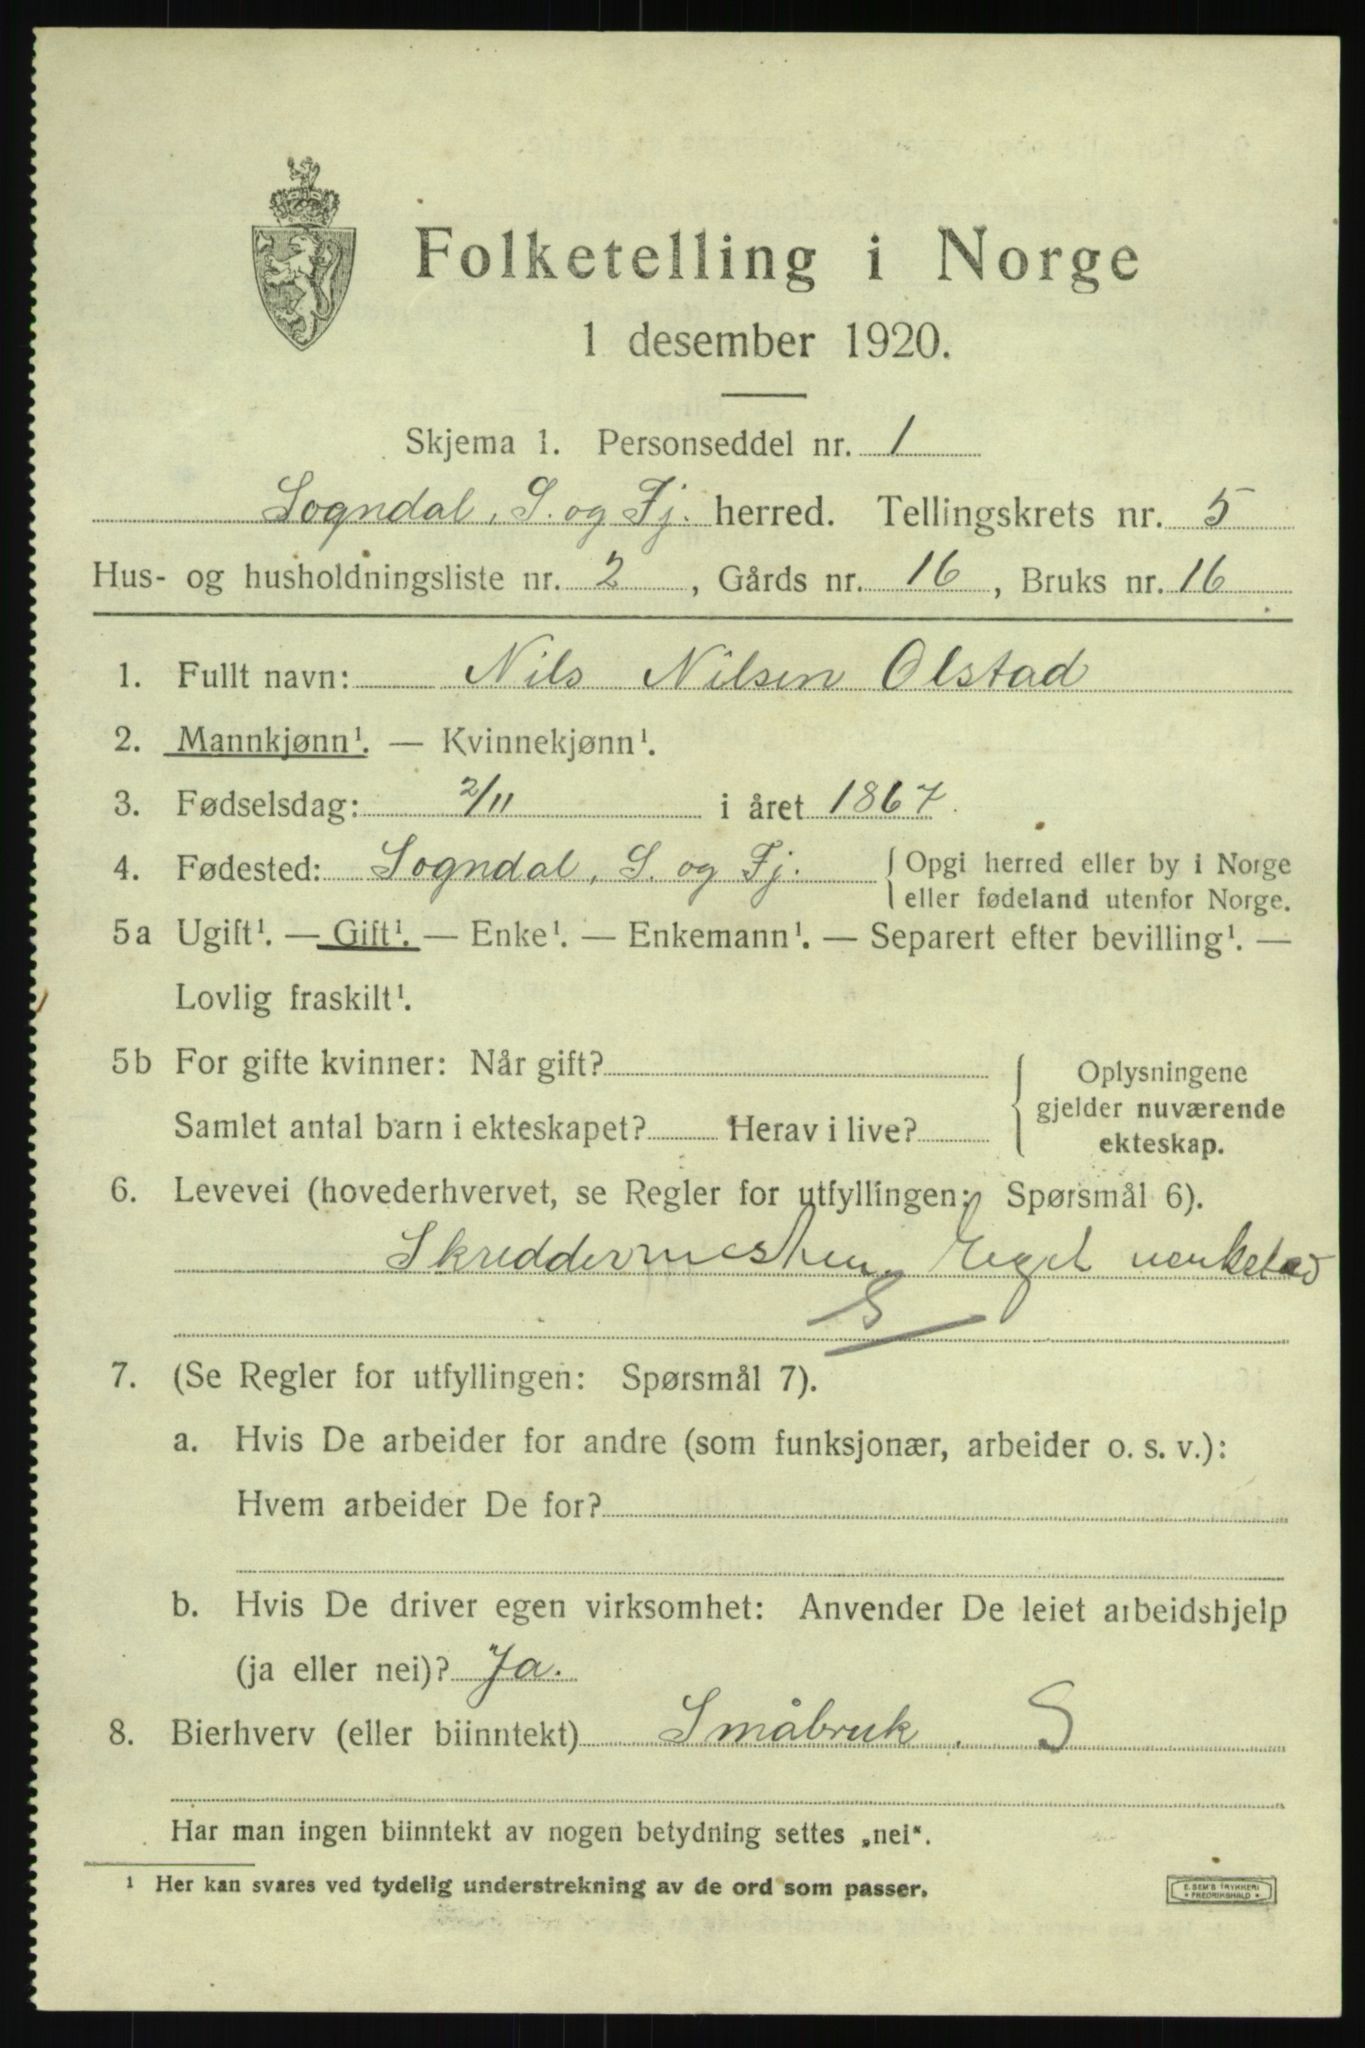 Folketelling i Norge
1 desember 1920.
Skjema 1. Personseddel nr. 1
Sogndal, S. og Fj. herred. Tellingskrets nr. 5
Hus- og husholdningsliste nr. 2, Gårds nr. 16, Bruks nr. 16
1. Fullt navn: Nils Nilsen Olstad
2. Mannkjønn¹. — Kvinnekjønn¹.
3. Fødselsdag: 2/11 i året 1867.
4. Fødested: Sogndal, S. og Fj. { Opgi herred eller by i Norge
eller fødeland utenfor Norge.
5a Ugift¹. — Gift¹. — Enke¹. — Enkemann¹. — Separert efter bevilling¹. —
Lovlig fraskilt¹.
5b For gifte kvinner: Når gift?
Samlet antal barn i ekteskapet? Herav i live?
{ Oplysningene
gjelder nuværende
ekteskap.
6. Levevei (hovederhvervet, se Regler for utfyllingen: Spørsmål 6).
Skreddermester. Eget verksted
S
7. (Se Regler for utfyllingen: Spørsmål 7).
a. Hvis De arbeider for andre (som funksjonær, arbeider o. s. v.):
Hvem arbeider De for?
b. Hvis De driver egen virksomhet: Anvender De leiet arbeidshjelp
(ja eller nei)? Ja.
8. Bierhverv (eller biinntekt) Småbruk. S
Har man ingen biinntekt av nogen betydning settes „nei“.
¹ Her kan svares ved tydelig understrekning av de ord som passer.
E. SEM'S TRYKKERI
* FREDRIKSHALD *